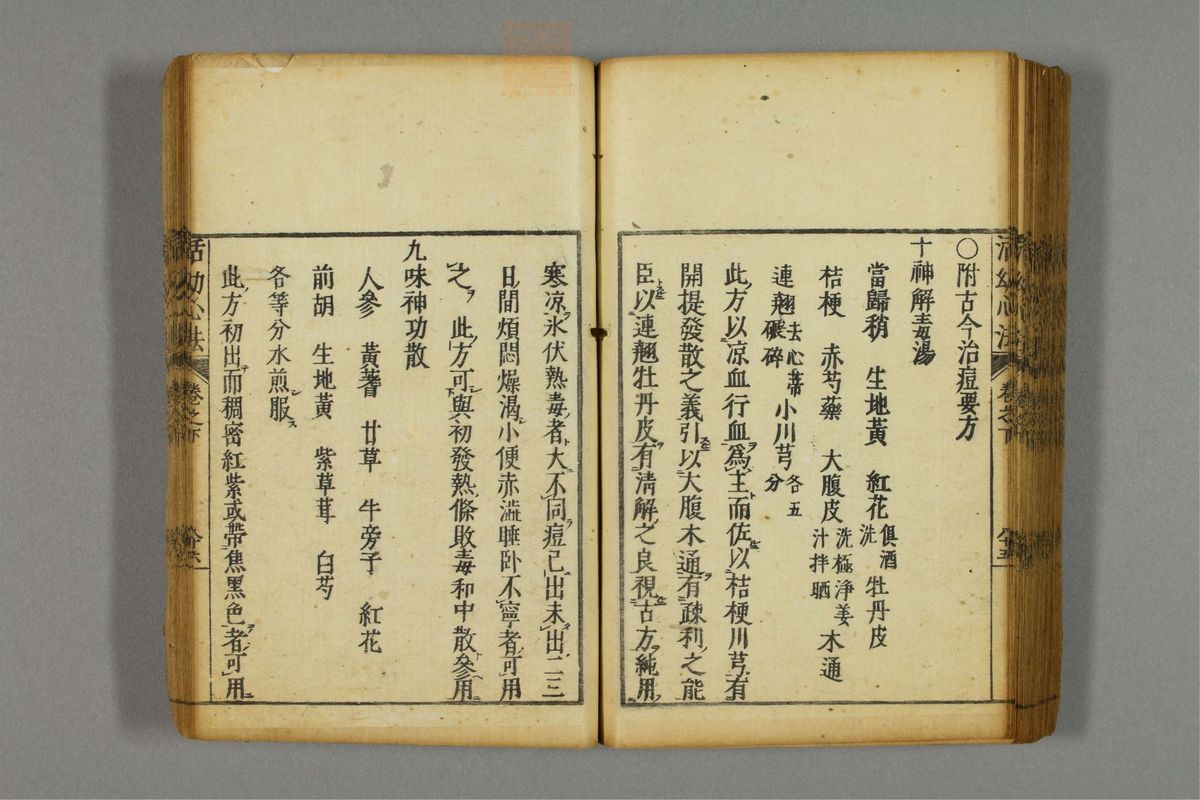 活幼心法
卷之下
八十五
〇附古今治痘要方
十神解毒湯
當歸稍 生地黃 紅花俱酒洗 牡丹皮
桔梗 赤芍藥 大腹皮洗極淨姜汁拌晒 木通
連翹去心蒂碾碎 小川芎各五分
此方以凉血行血爲主而佐以桔梗川芎有
開提發散之義引以大腹木通有疎利之能
臣以連翹牡丹皮有清解之良視古方純用
寒凉氷伏熱毒者大不同痘已出未出二三
日間煩悶燥渴小便赤澁睡卧不寧者可用
之此方可與初發熱條敗毒和中散參用
九味神功散
人參 黃蓍 甘草 牛旁子 紅花
前胡 生地黃 紫草茸 白芍
各等分水煎服
此方初出而稠密紅紫或帶焦黑色者可用
活幼心法
卷之下